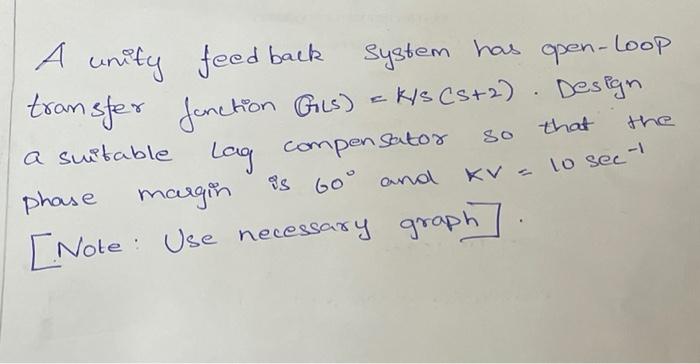 A unity feed back System has open-loop
transfer function G(s) = K/s (s+2). Design
a suitable Lag compensator so that the
phase margin is 60° and KV = 10 sec⁻¹
[Note: Use necessary graph].